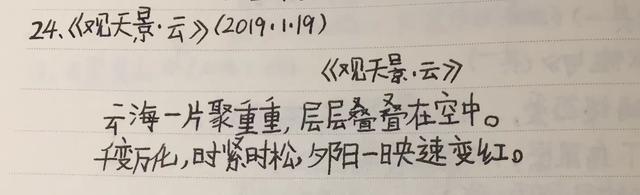 24.《观天景·云》(2019.1.19)
《观天景·云》
云海一片聚重重,层层叠叠在空中。
千变万化,时紧时松,夕阳一映速变红。